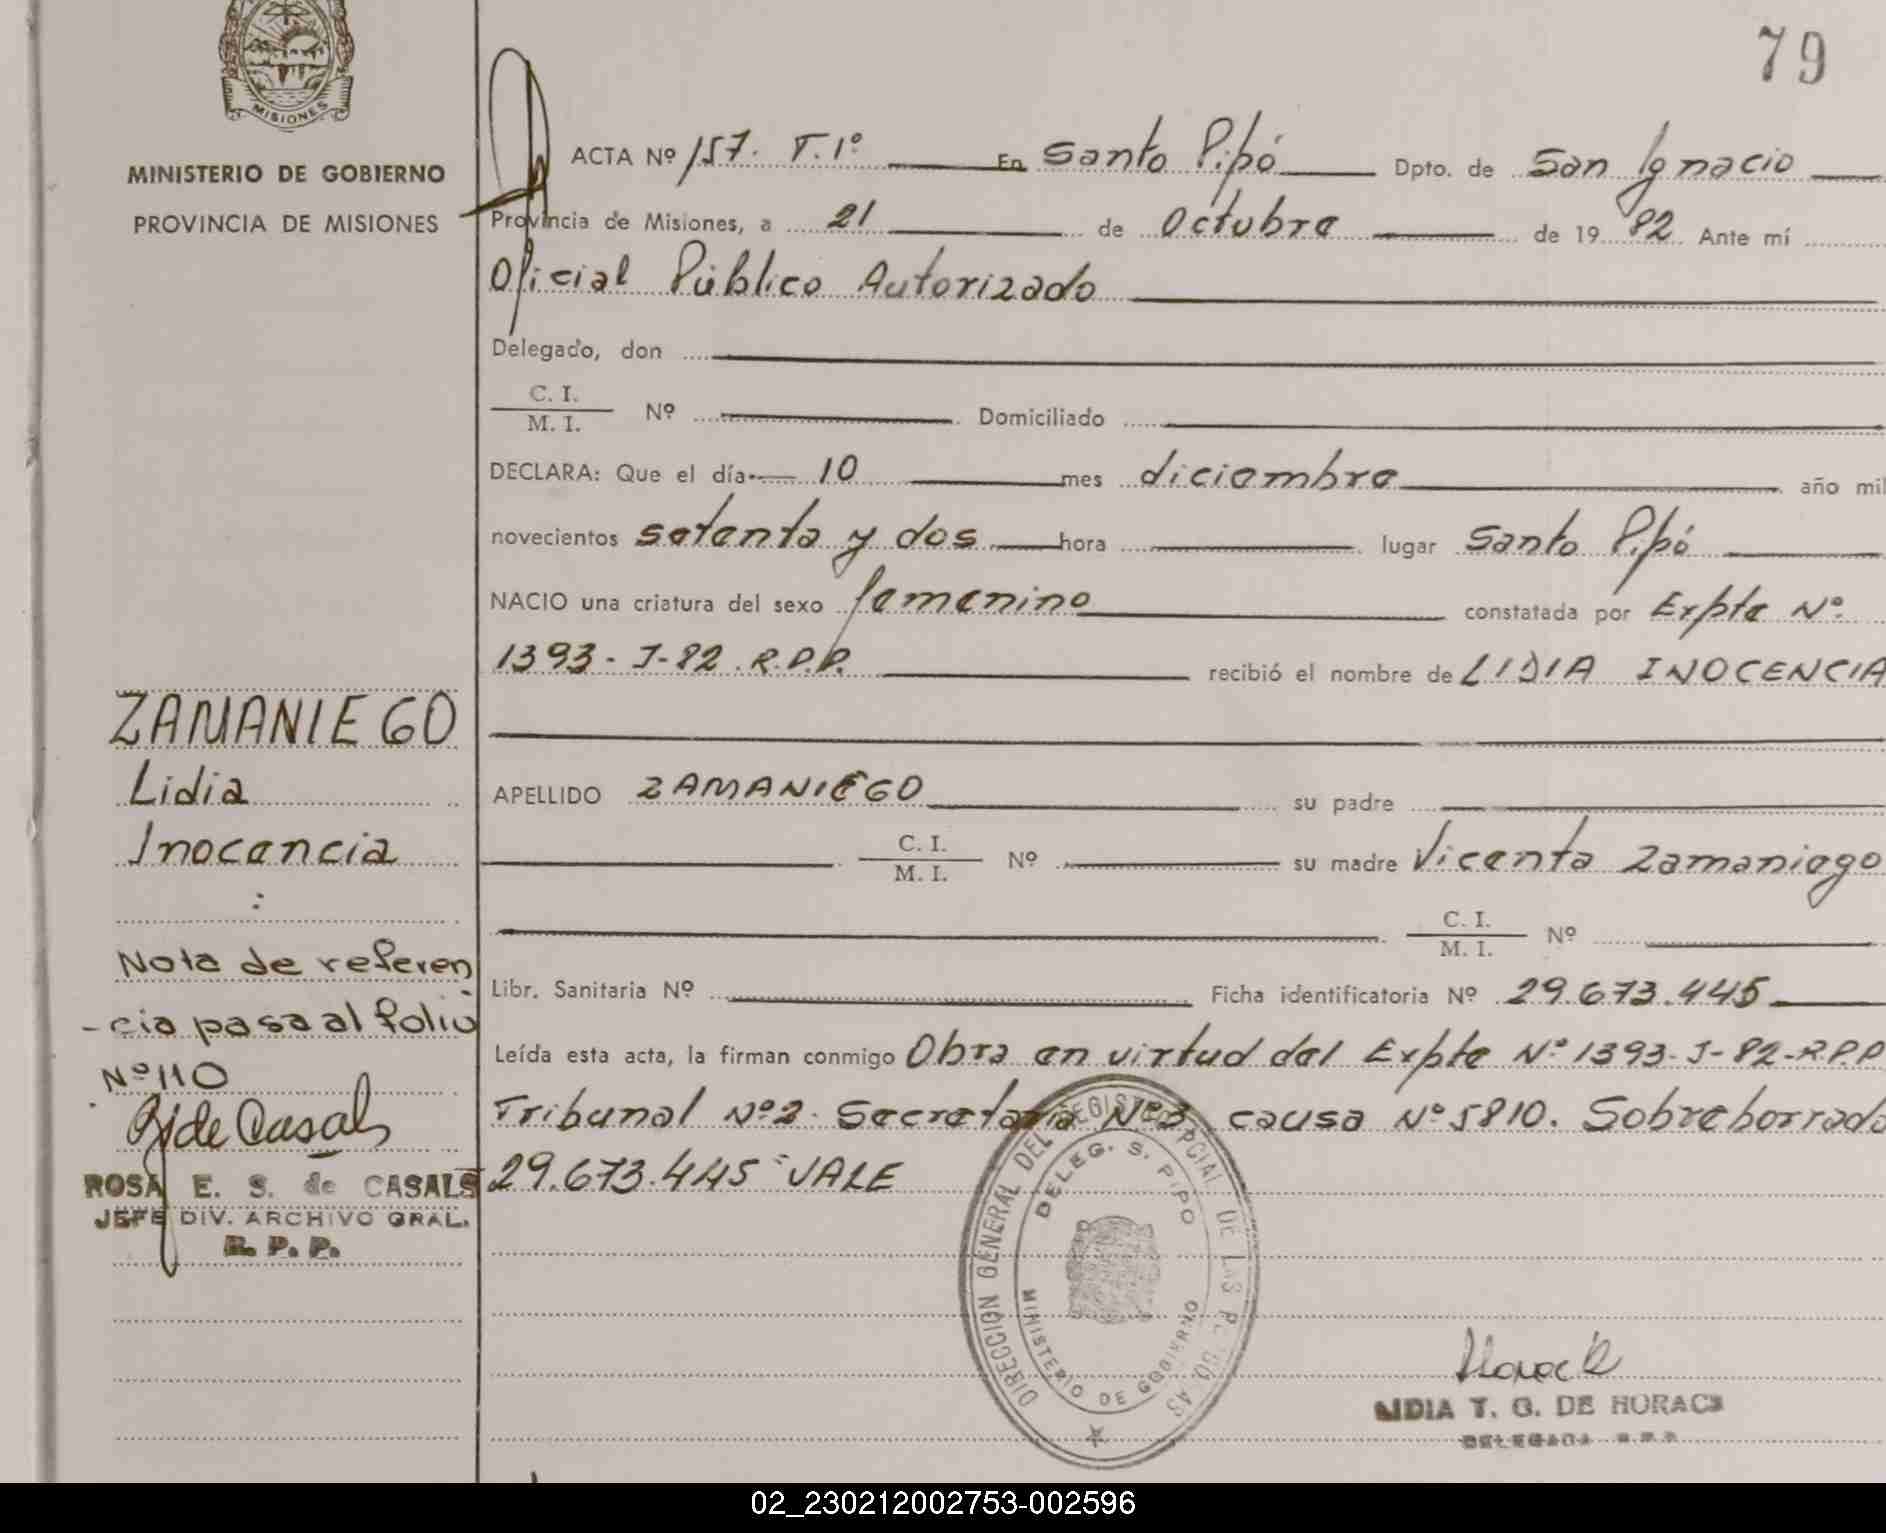 MISIONES
79
MINISTERIO DE GOBIERNO
PROVINCIA DE MISIONES
ACTA Nº 157. T. 1º En Santo Pipó Dpto. de San Ignacio
Provincia de Misiones, a 21 de Octubre de 19 82 Ante mí
Oficial Público Autorizado
Delegado, don
C. I.
M. I.
Nº Domiciliado
DECLARA: Que el día 10 mes diciembre año mil
novecientos setenta y dos hora lugar Santo Pipó
NACIO una criatura del sexo femenino constatada por Expte Nº
1393-J-82 R.P.P. recibió el nombre de LIDIA INOCENCIA
APELLIDO ZAMANIEGO su padre
C. I.
M. I.
Nº su madre Vicenta Zamaniego
C. I.
M. I.
Nº
Libr. Sanitaria Nº Ficha identificatoria Nº 29.673.445
Leída esta acta, la firman conmigo Obra en virtud del Expte Nº 1393-J-82-R.P.P
Tribunal Nº 2. Secretaria Nº 3 causa Nº 5810. Sobreborrado
29.673.445 "VALE
ZAMANIEGO
Lidia
Inocencia
:
Nota de referen
-cia pasa al folio
Nº 110
de Casals
ROSA E. S. de CASALS
JEFE DIV. ARCHIVO GRAL.
R. P. P.
DIRECCION GENERAL DEL REGISTRO PCIAL DE LAS
DELEG. S. PIPO
MINISTERIO DE GOBIERNO
LIDIA T. G. DE HORACK
DELEGADA R.P.P.
02_230212002753-002596